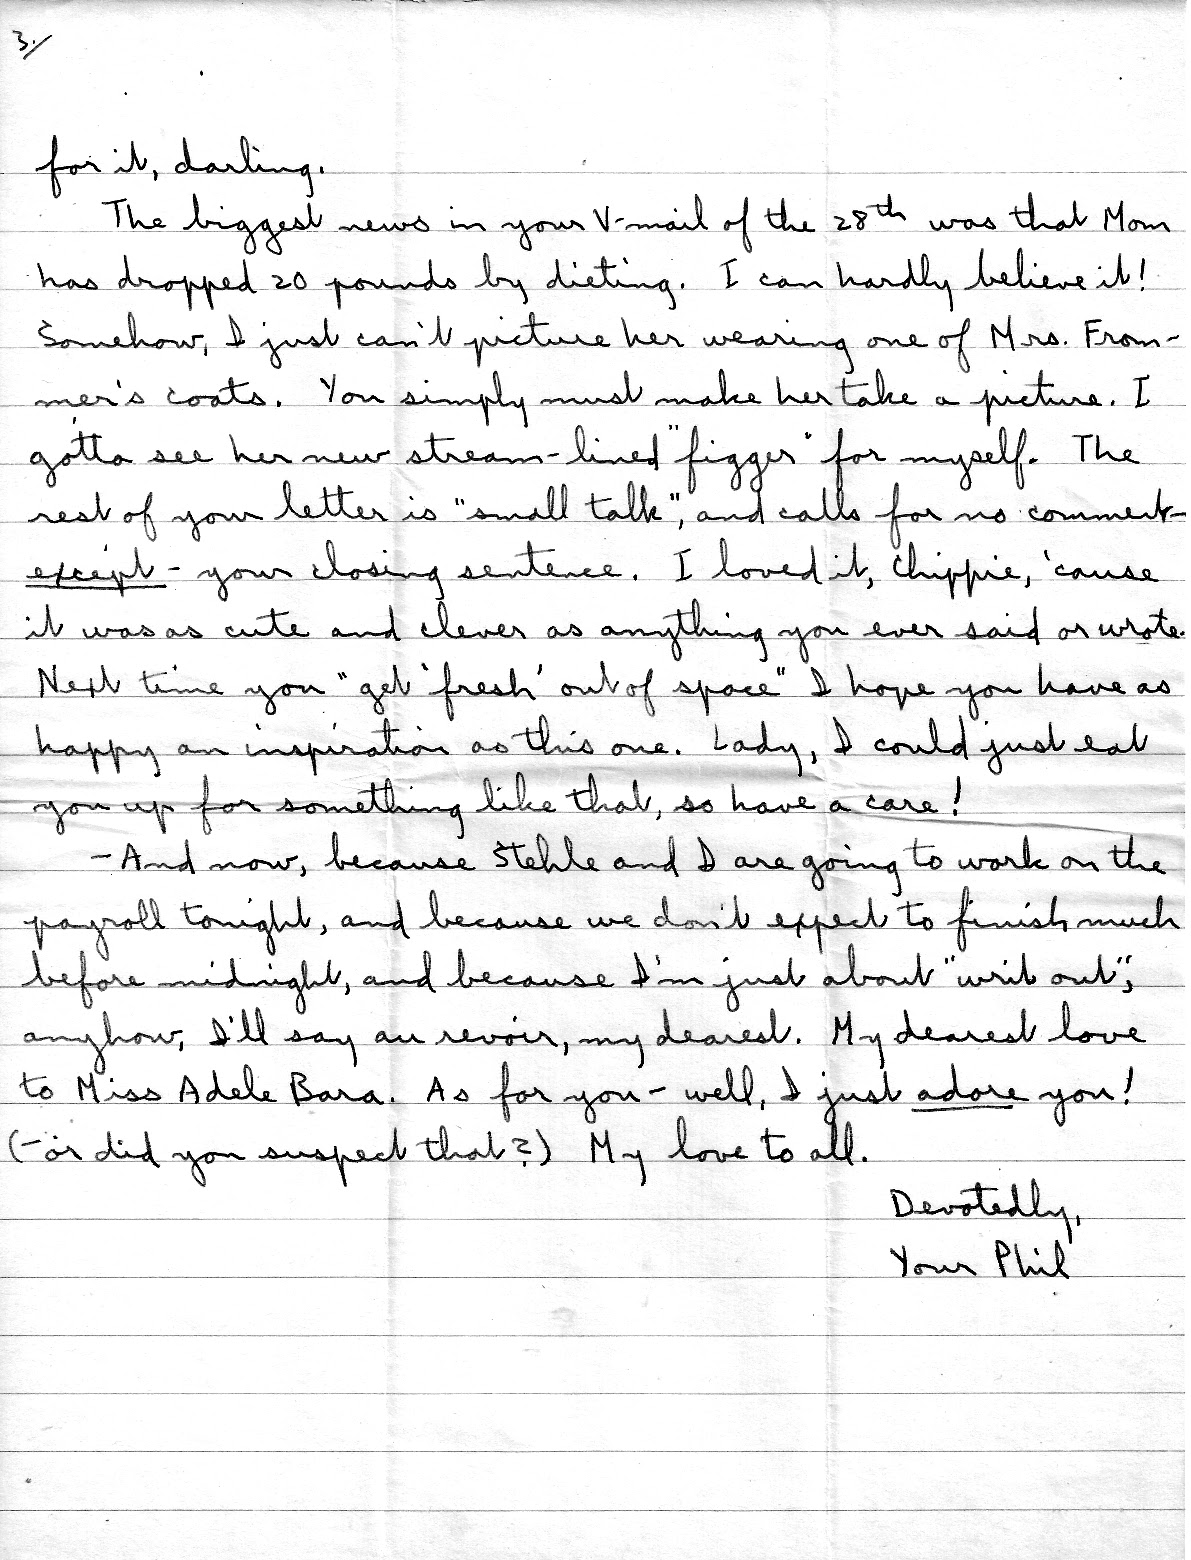 3./
for it, darling.
The biggest news in your V-mail of the 28th was that Mom
has dropped 20 pounds by dieting. I can hardly believe it!
Somehow, I just can't picture her wearing one of Mrs. From-
mer's coats. You simply must make her take a picture. I
gotta see her new stream-lined "figger" for myself. The
rest of your letter is "small talk", and calls for no comment-
except - your closing sentence. I loved it, Chippie, 'cause
it was as cute and clever as anything you ever said or wrote.
Next time you "get 'fresh' out of space" I hope you have as
happy an inspiration as this one. Lady, I could just eat
you up for something like that, so have a care!
-And now, because Stehle and I are going to work on the
payroll tonight, and because we don't expect to finish much
before midnight, and because I'm just about "writ out",
anyhow, I'll say au revoir, my dearest. My dearest love
to Miss Adele Bara. As for you - well, I just adore you!
(-or did you suspect that?) My love to all.
Devotedly,
Your Phil